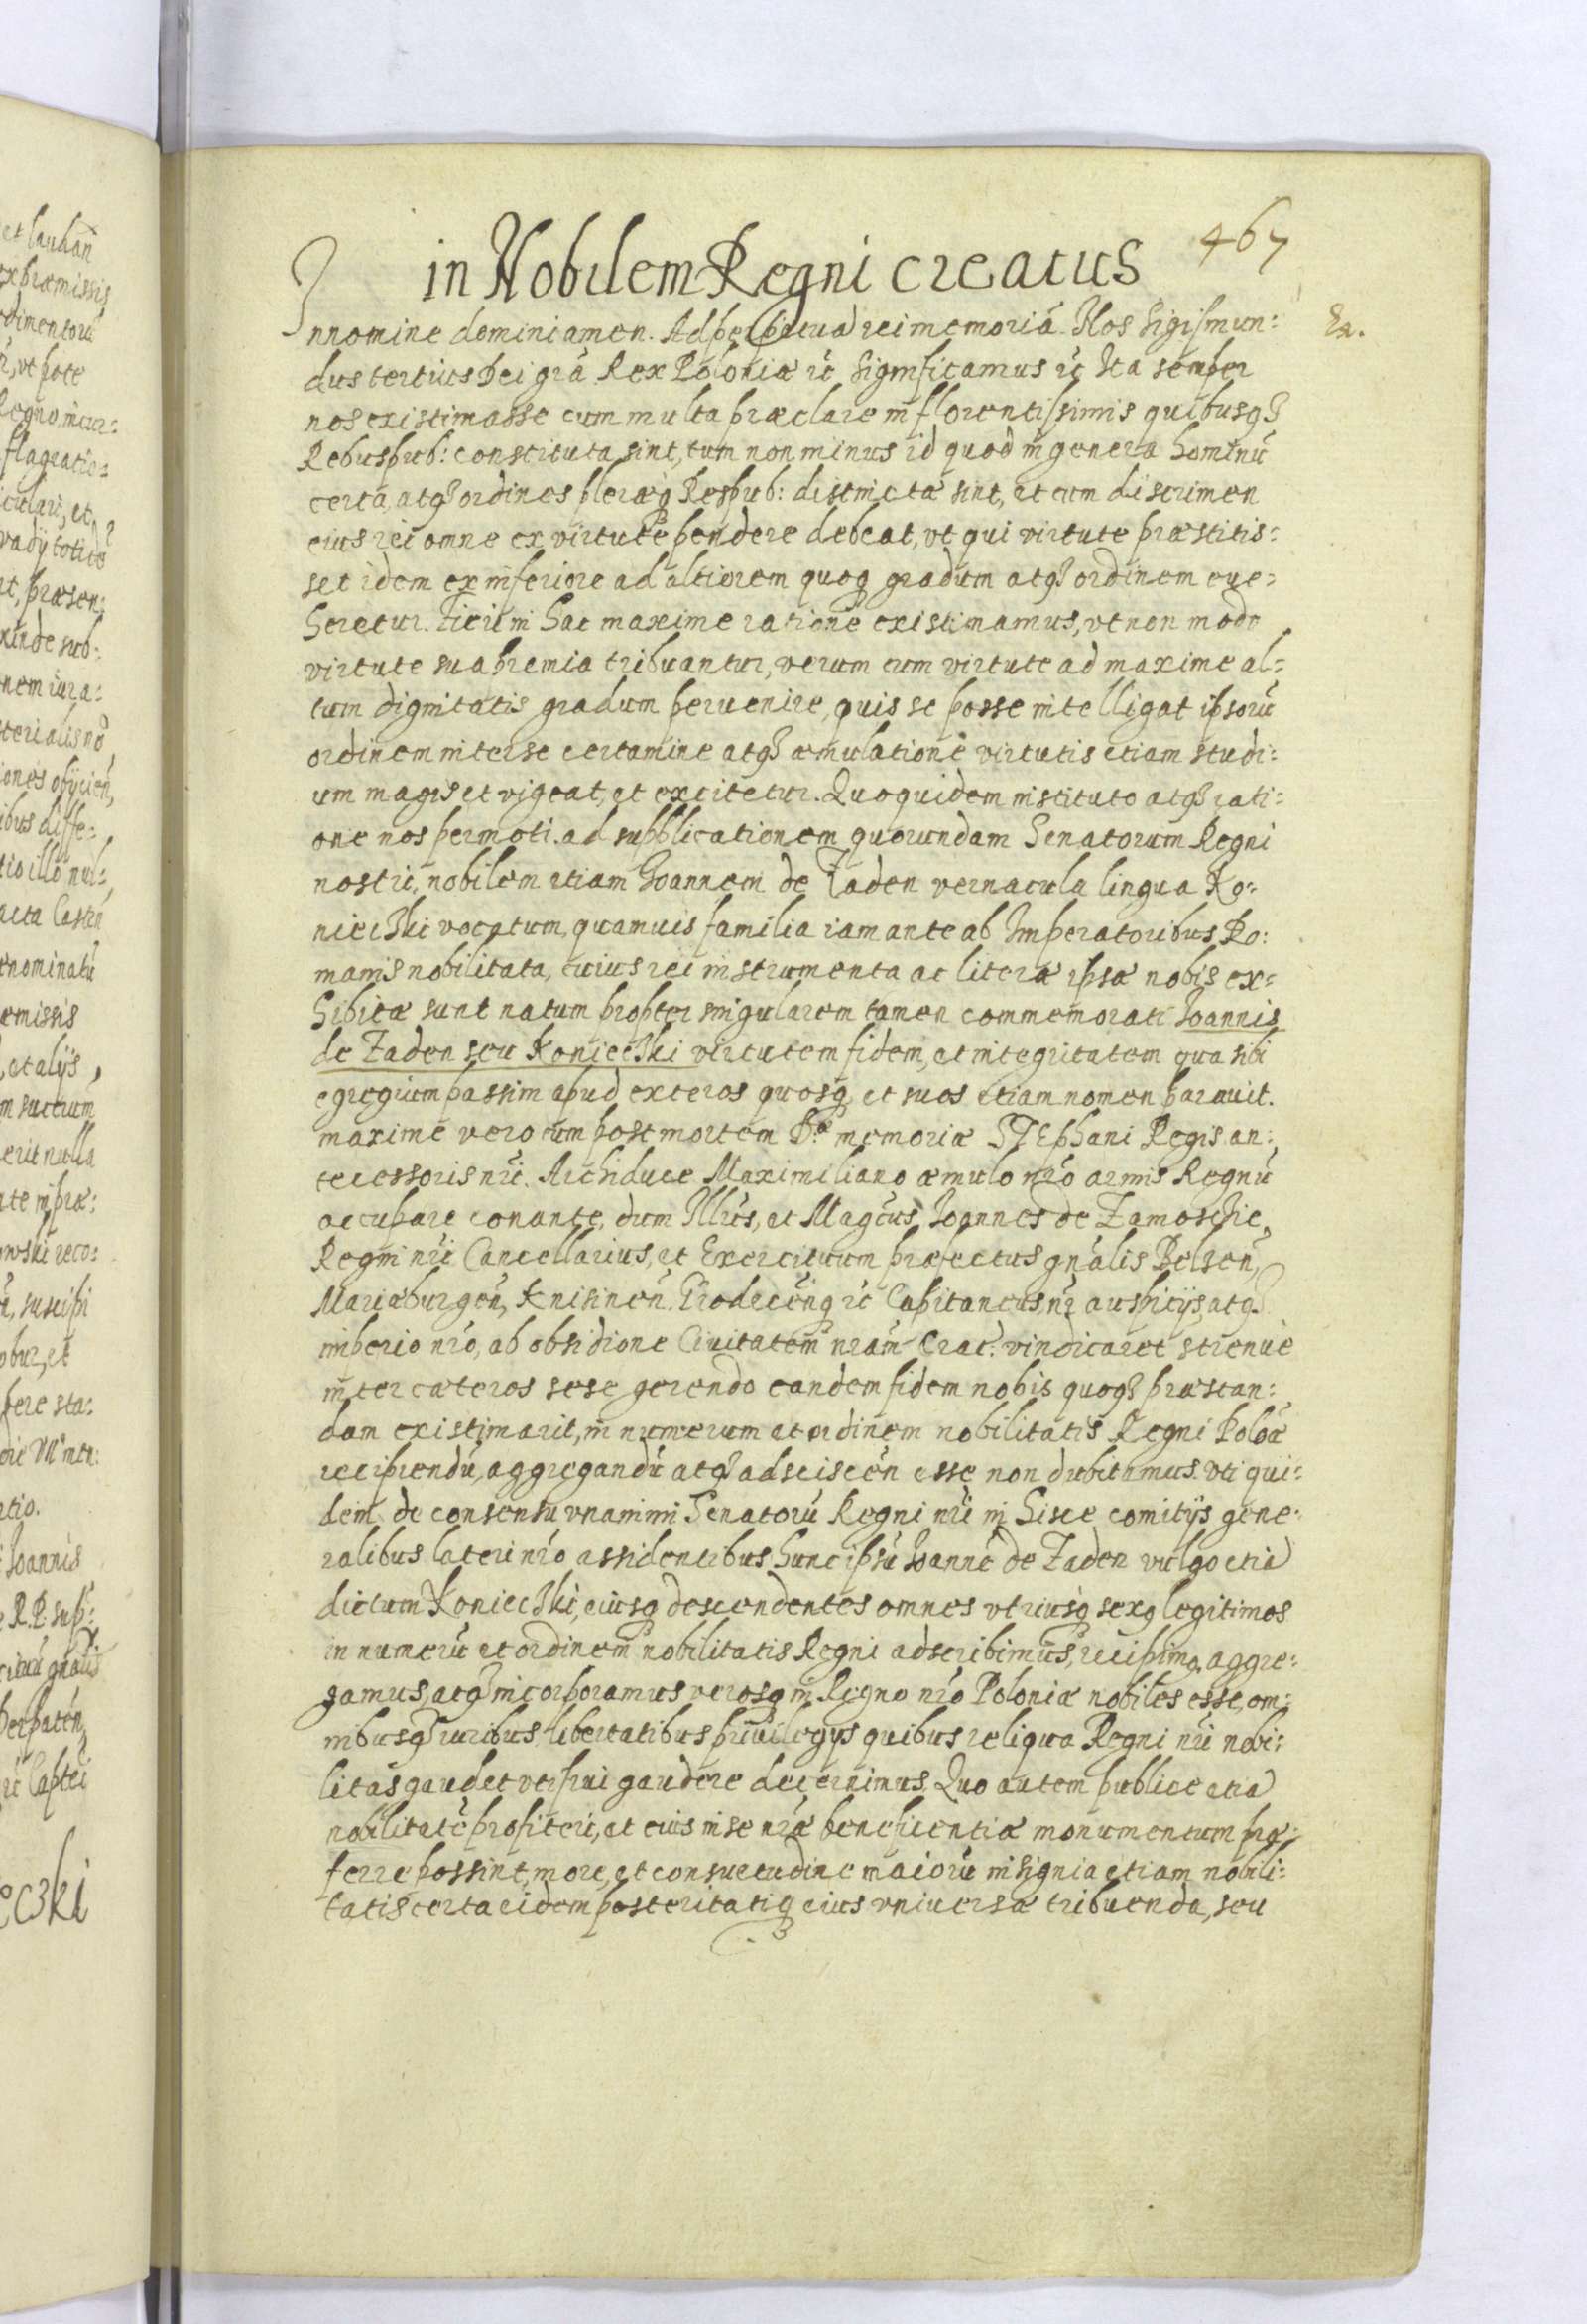 et laudan̄
ex præmissis
dimentorū
ut pote
Regno, incur:
flagratio:
iculari, et
vadÿ totidē
præsen:
xinde sub:
nem iura:
terialis nō
iones ofÿcien̄,
ibus diffe:
tio illo nul:
acta Castrē
enominatū
æmissis
et alÿs,
m suerum
erit nulla
nte in præ:
owski reco:
suscipi
obur, et
pere sta:
die Mᵗⁱˢ mtū:
atio.
Joannis
R.P. sup:
gn̄alis
perpatén,
rc̄ Captei
eczki
467
in Nobilem Regni creatus
Innomine domini amen. Ad perpetuā rei memoriā. Nos Sigismun: Ex.
dus tertius Dei grā Rex Poloniæ rc̄ Significamus rc̄ Ita semper
nos existimasse cum multa præclare in florentissimis quibusqȝ
Rebuspub: constituta sint, tum non minus id quod in genera hominū
certa, atqȝ ordines pleræqȝ Respub: distinctæ sint, et cum discrimen
eius rei omne ex virtute pendere debeat, vt qui virtute præstitis:
set idem ex inferiore ad altiorem quoqȝ gradum atqȝ ordinem eue:
heretur. Fieri in hac maxime ratione existimamus, vt non modo
virtute sua premia tribuantur, verum cum virtute ad maxime al:
tum dignitatis gradum peruenire, quis se posse intelligat ipsorū
ordinem inter se certamine atqȝ æmulatione virtutis etiam studi:
um magis et vigeat, et excitetur. Quoquidem instituto atqȝ rati:
one nos permoti. ad supplicationem quorundam Senatorum Regni
nostri, nobilem etiam Joannem de Zaden vernacula lingua Ko:
nieczki vocatum, quamuis familia iam ante ab Imperatoribus Ro:
manis nobilitata, cuius rei instrumenta ac literæ ipsæ nobis ex:
hibitæ sunt natum propter singularem tamen commemorati Joannis
de Zaden seu Konieczki virtutem fidem, et integritatem qua sibi
egregium passim apud exteros quosqȝ et suos etiam nomen parauit.
maxime vero cum post mortem Dᵉ memoriæ STEphani Regis an:
tecessoris nrī. Archiduce Maximiliano æmulo nrō armis Regnū
occupare conante, dum Illrīs, et Magcūs Joannes de Zamoschie,
Regni nrī Cancellarius, et Exercituum præfectus gnālis Belzeñ,
Mariæburgeñ, Knisineñ. Grodeceñqȝ rc̄ Capitaneus nr̄ auspicÿs, atqȝ
imperio nrō, ab obsidione Ciuitatem nrām Crac: vindicaret strenuè
inter cæteros sese gerendo eandem fidem nobis quoqȝ præstan:
dam existimarit, in numerum et ordinem nobilitatis Regni Polōæ
recipiendū, aggregandū atqȝ adscisceñ esse non dubitamus. vti qui:
dem de consensu vnanimi Senatorū Regni nrī in hisce comitÿs gene:
ralibus lateri nrō assidentibus hunc ipsū Joannē de Zaden vulgo etiā
dictum Konieczki, eiusqȝ descendentes omnes vtriusqȝ sexqȝ legitimos
in numerū et ordinem nobilitatis Regni adscribimus, recipimȝ, aggre:
gamus, atqȝ incorporamus verosqȝ in Regno nrō Poloniæ nobiles esse, om:
nibusqȝ iuribus libertatibus priuilegÿs quibus reliqua Regni nrī nobi:
litas gaudet vti frui gaudere decernimus. Quo autem publice etiā
nobilitatē profiteri, et eius in se nræ beneficentiæ monumentum præ:
ferre possint, more, et consuetudine maiorū insignia etiam nobili:
tatis certa eidem posteritatiqȝ eius vniversæ tribuenda, seu